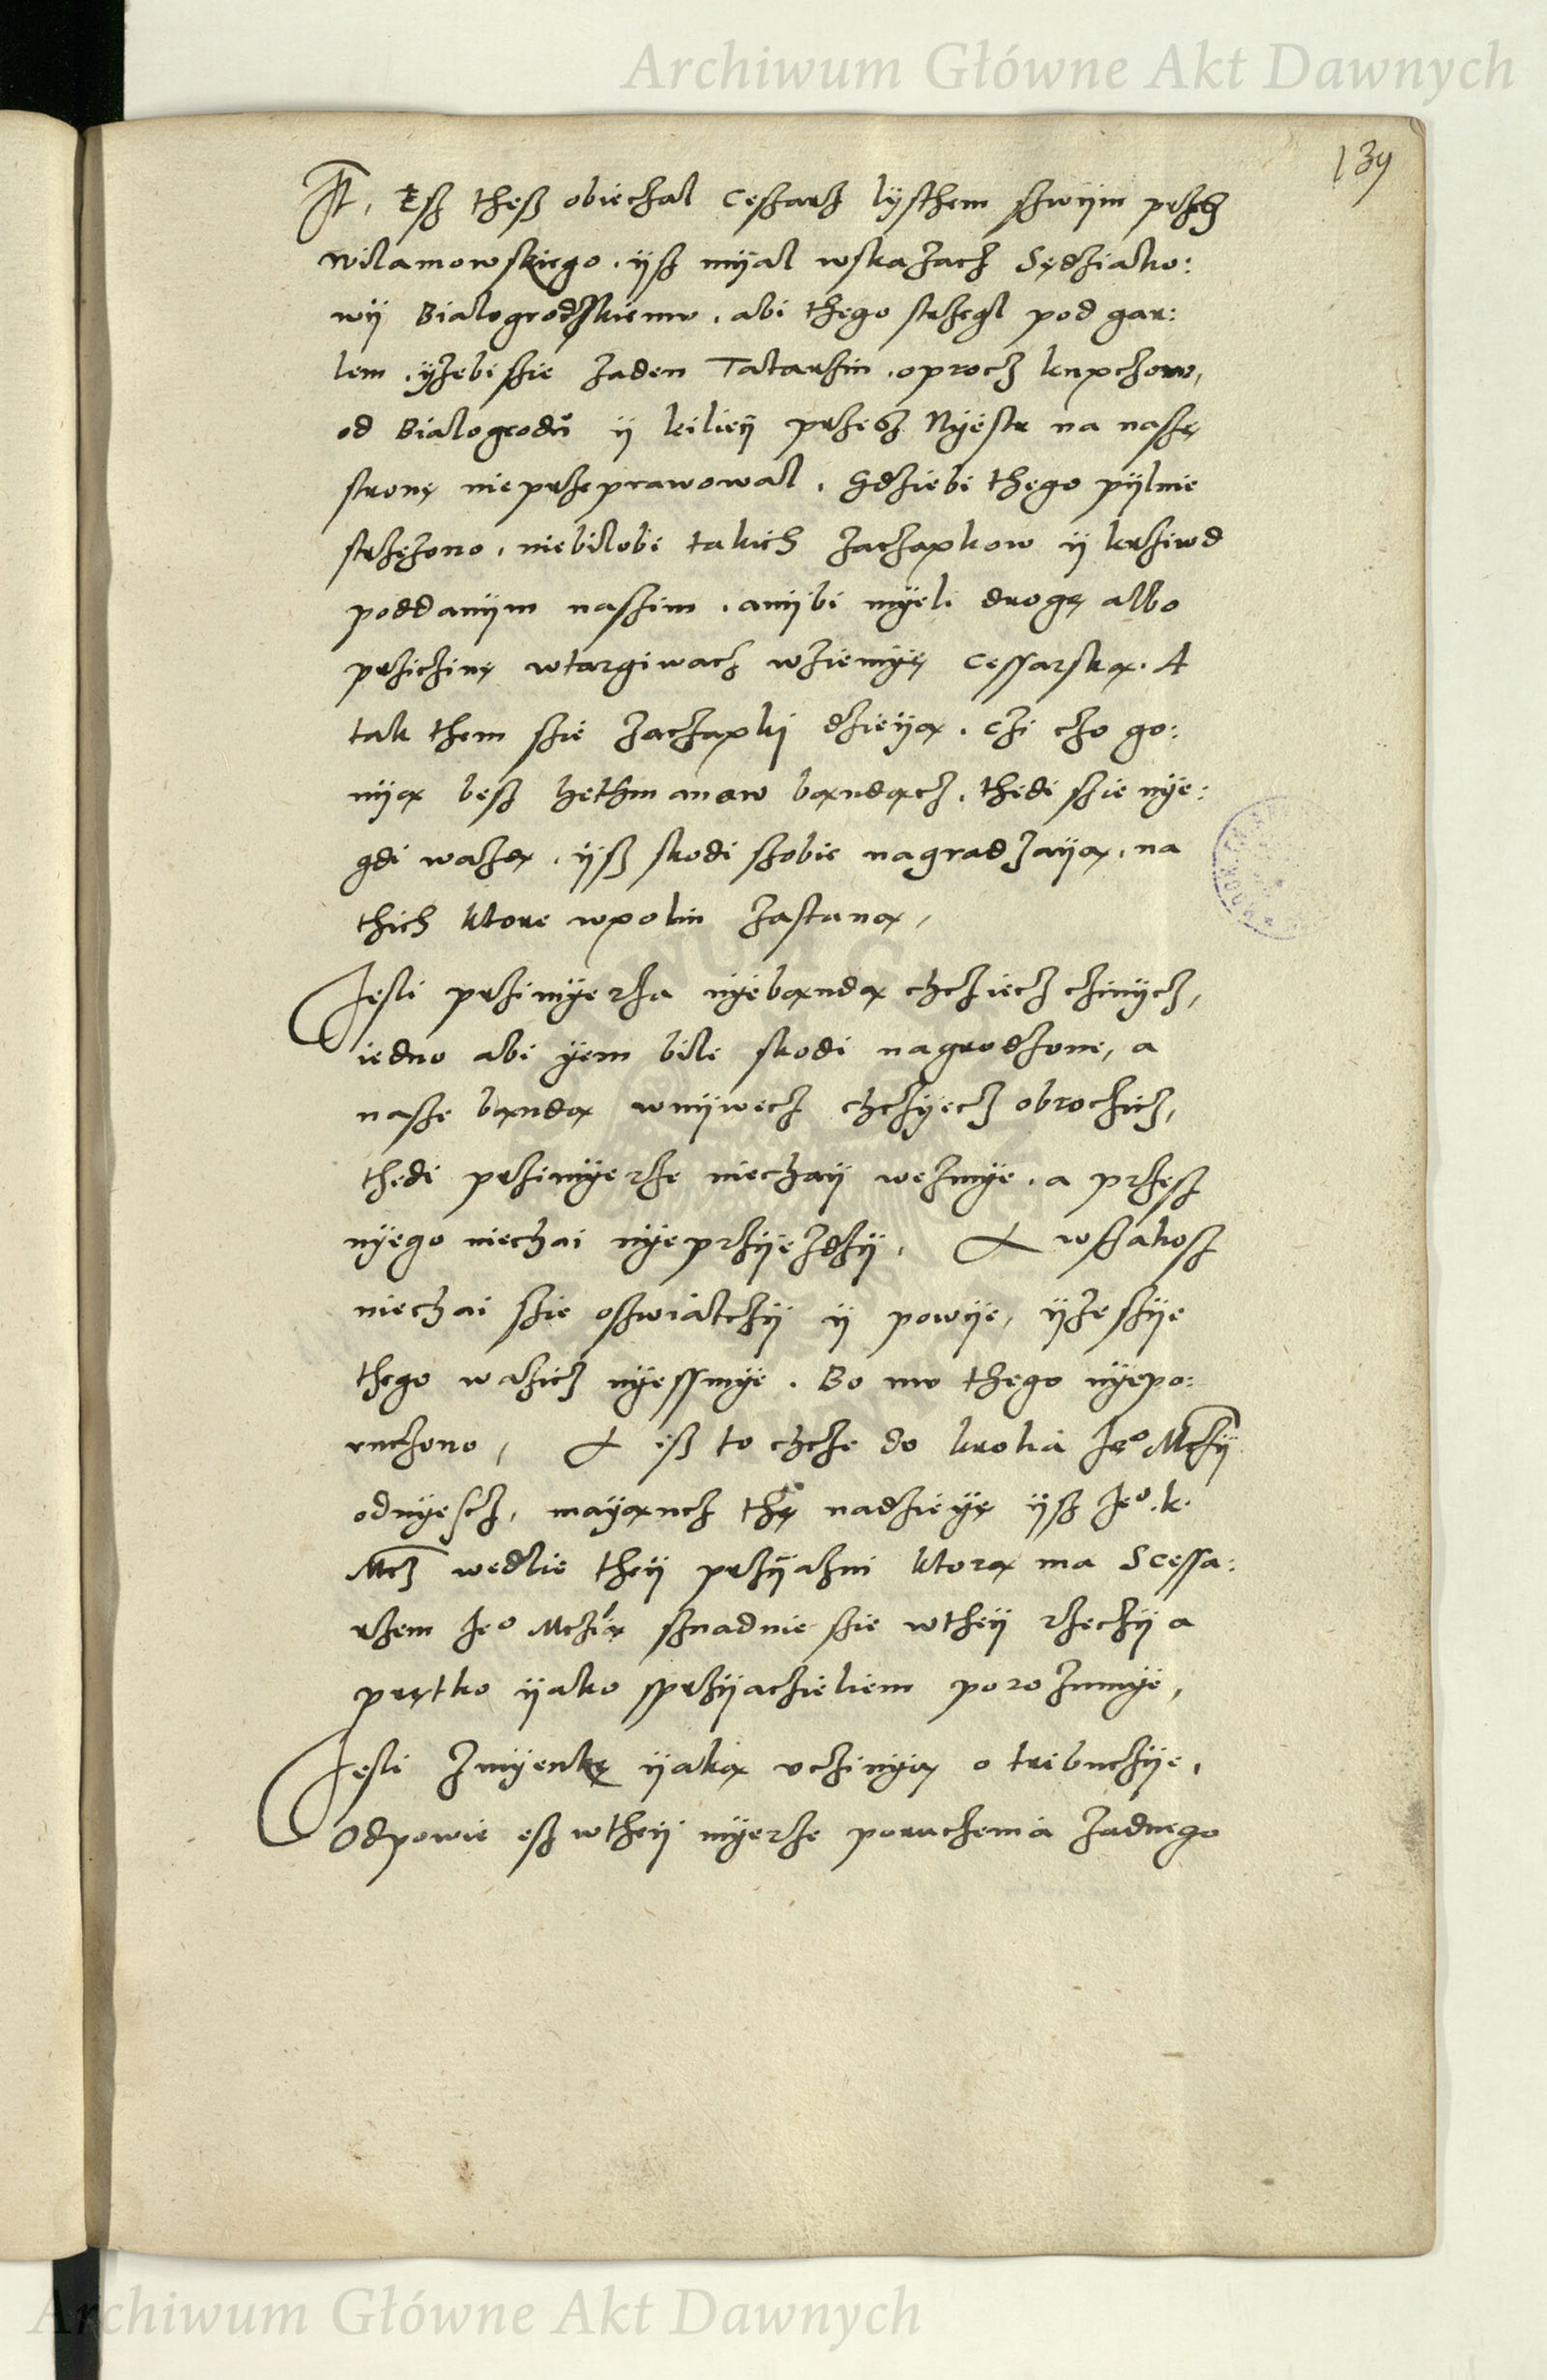 Archiwum Główne Akt Dawnych
139
It, Esz thesz obiechal Ceszarz lÿsthem szwÿim przesz
wilamowskiego. ÿsz mÿal wskazacz Sędziako:
wÿ Bialogrodzskiemu. abi thego strzegl pod gar:
lem. ÿzebi szie zaden Tatarzin. oprocz kupczow,
od Bialogrodu ÿ kiliey przesz Nyestr na naszę
stronę nieprzeprawowal. Gdziebi thego pÿlnie
strzezono, niebilobi takich zaczapkow ÿ krziwd
poddanÿm naszim. anÿbi mÿeli drogę albo
prziczinę wtargiwacz wziemÿę Cessarską. A
tak them szie zaczapki dzieÿą. Czi czo go:
nÿą besz hethmanow bąndącz. thedi szie nye:
gdi wazą. ÿsz skodi szobie nagradzaÿą, na
thich ktore wpoliu zastaną,
Jesli przimÿerza nÿebąndą chcziecz czinycz,
iedno abi ÿem bili skodi nagrodzone, a
nasze bąndą wnÿwecz chczÿecz obroczicz,
thedi przimÿerze niechaÿ wezmÿe. a przesz
nÿego niechai nÿeprzÿiezdzÿ. A wszakosz
niechai szie oszwiatczÿ ÿ powÿe, ÿze szÿe
thego wazicz nÿessmÿe. Bo mu thego nÿepo:
ruczono, A esz to chcze do krolia Jeo Mczÿ
odnÿescz, maÿąncz thę nadzieÿę ÿsz Jeo. k.
Mcz wedlie theÿ przÿazni ktorą ma Scessa:
rzem Jeo Mczią sznadnie szie wtheÿ rzeczÿ a
prętko ÿako sprzÿiaczieliem porozumÿe,
Jesli zmÿenkę ÿaką vczinÿą o tribuczÿe,
Odpowie esz wtheÿ mÿerze poruczenia zadnego
Archiwum Główne Akt Dawnych